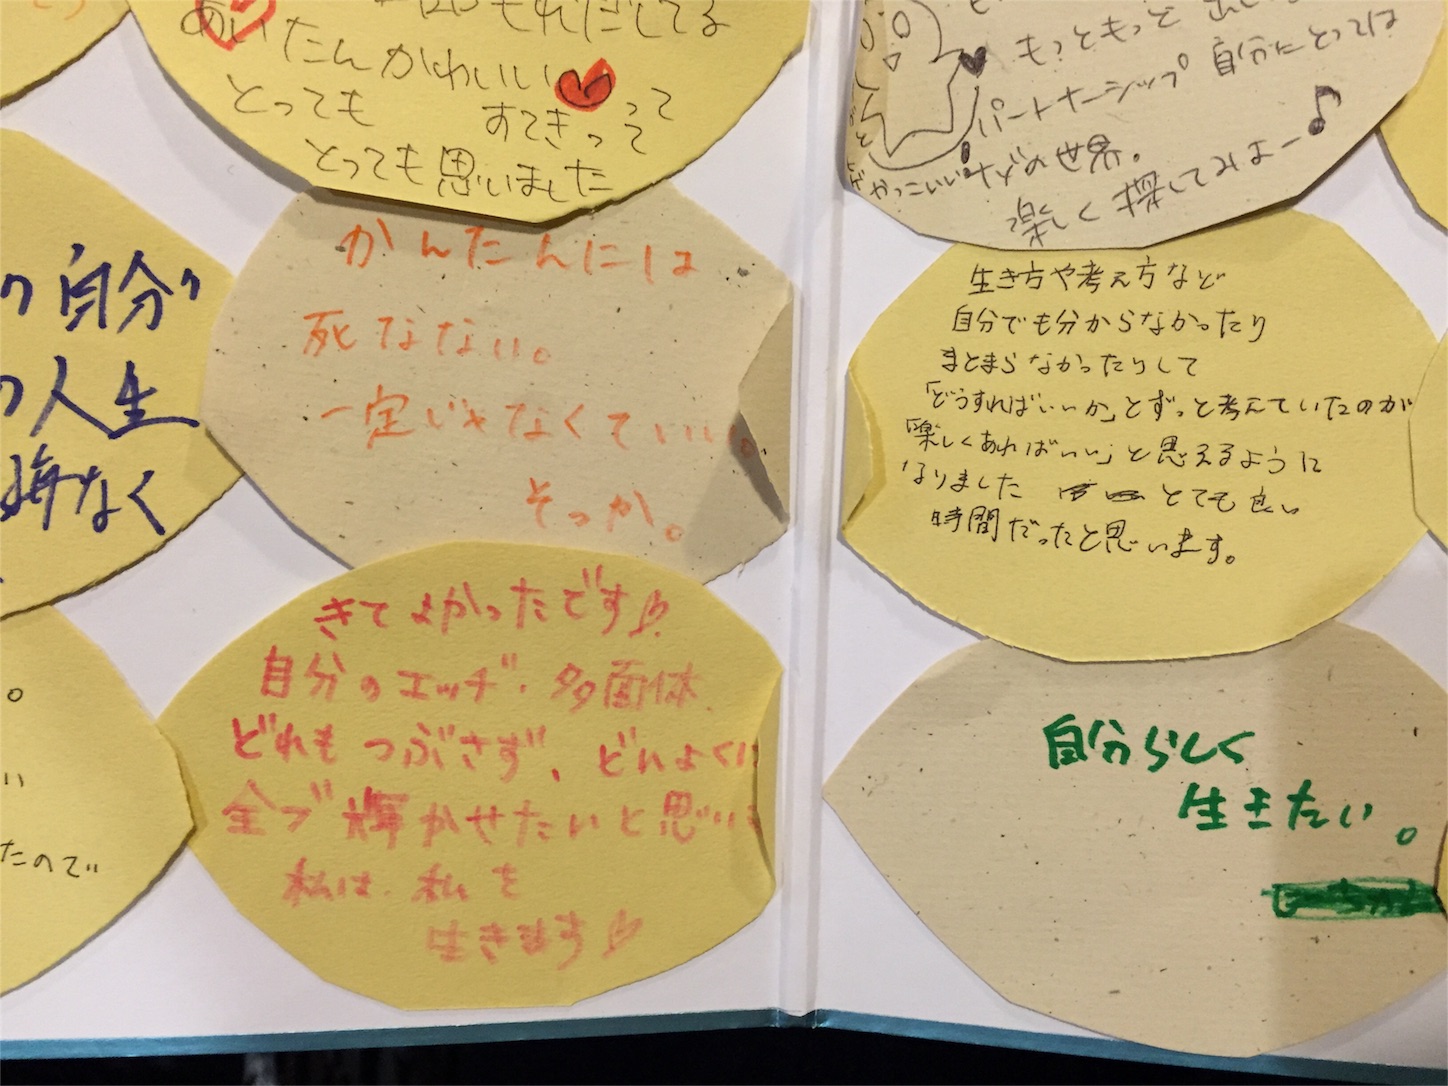 たんかわいい
とっても
すてきって
とっても思いました
自分
人生
悔なく
かんたんには
死なない。
一定じゃなくていい。
そっか。
きてよかったです
自分のエッヂ・多面体、
どれもつぶさず、どれよくに
全ブ輝かせたいと思い
私は、私を
生きます
たので
もっともっと
パートナーシップ 自分にとっては
かっこいい
の世界。
楽しく探してみよー♪
生き方や考え方など
自分でも分からなかったり
まとまらなかったりして
「どうすればいいか」とずっと考えていたのが
「楽しくあればいい」と思えるように
なりました とても良い
時間だったと思います。
自分らしく
生きたい。